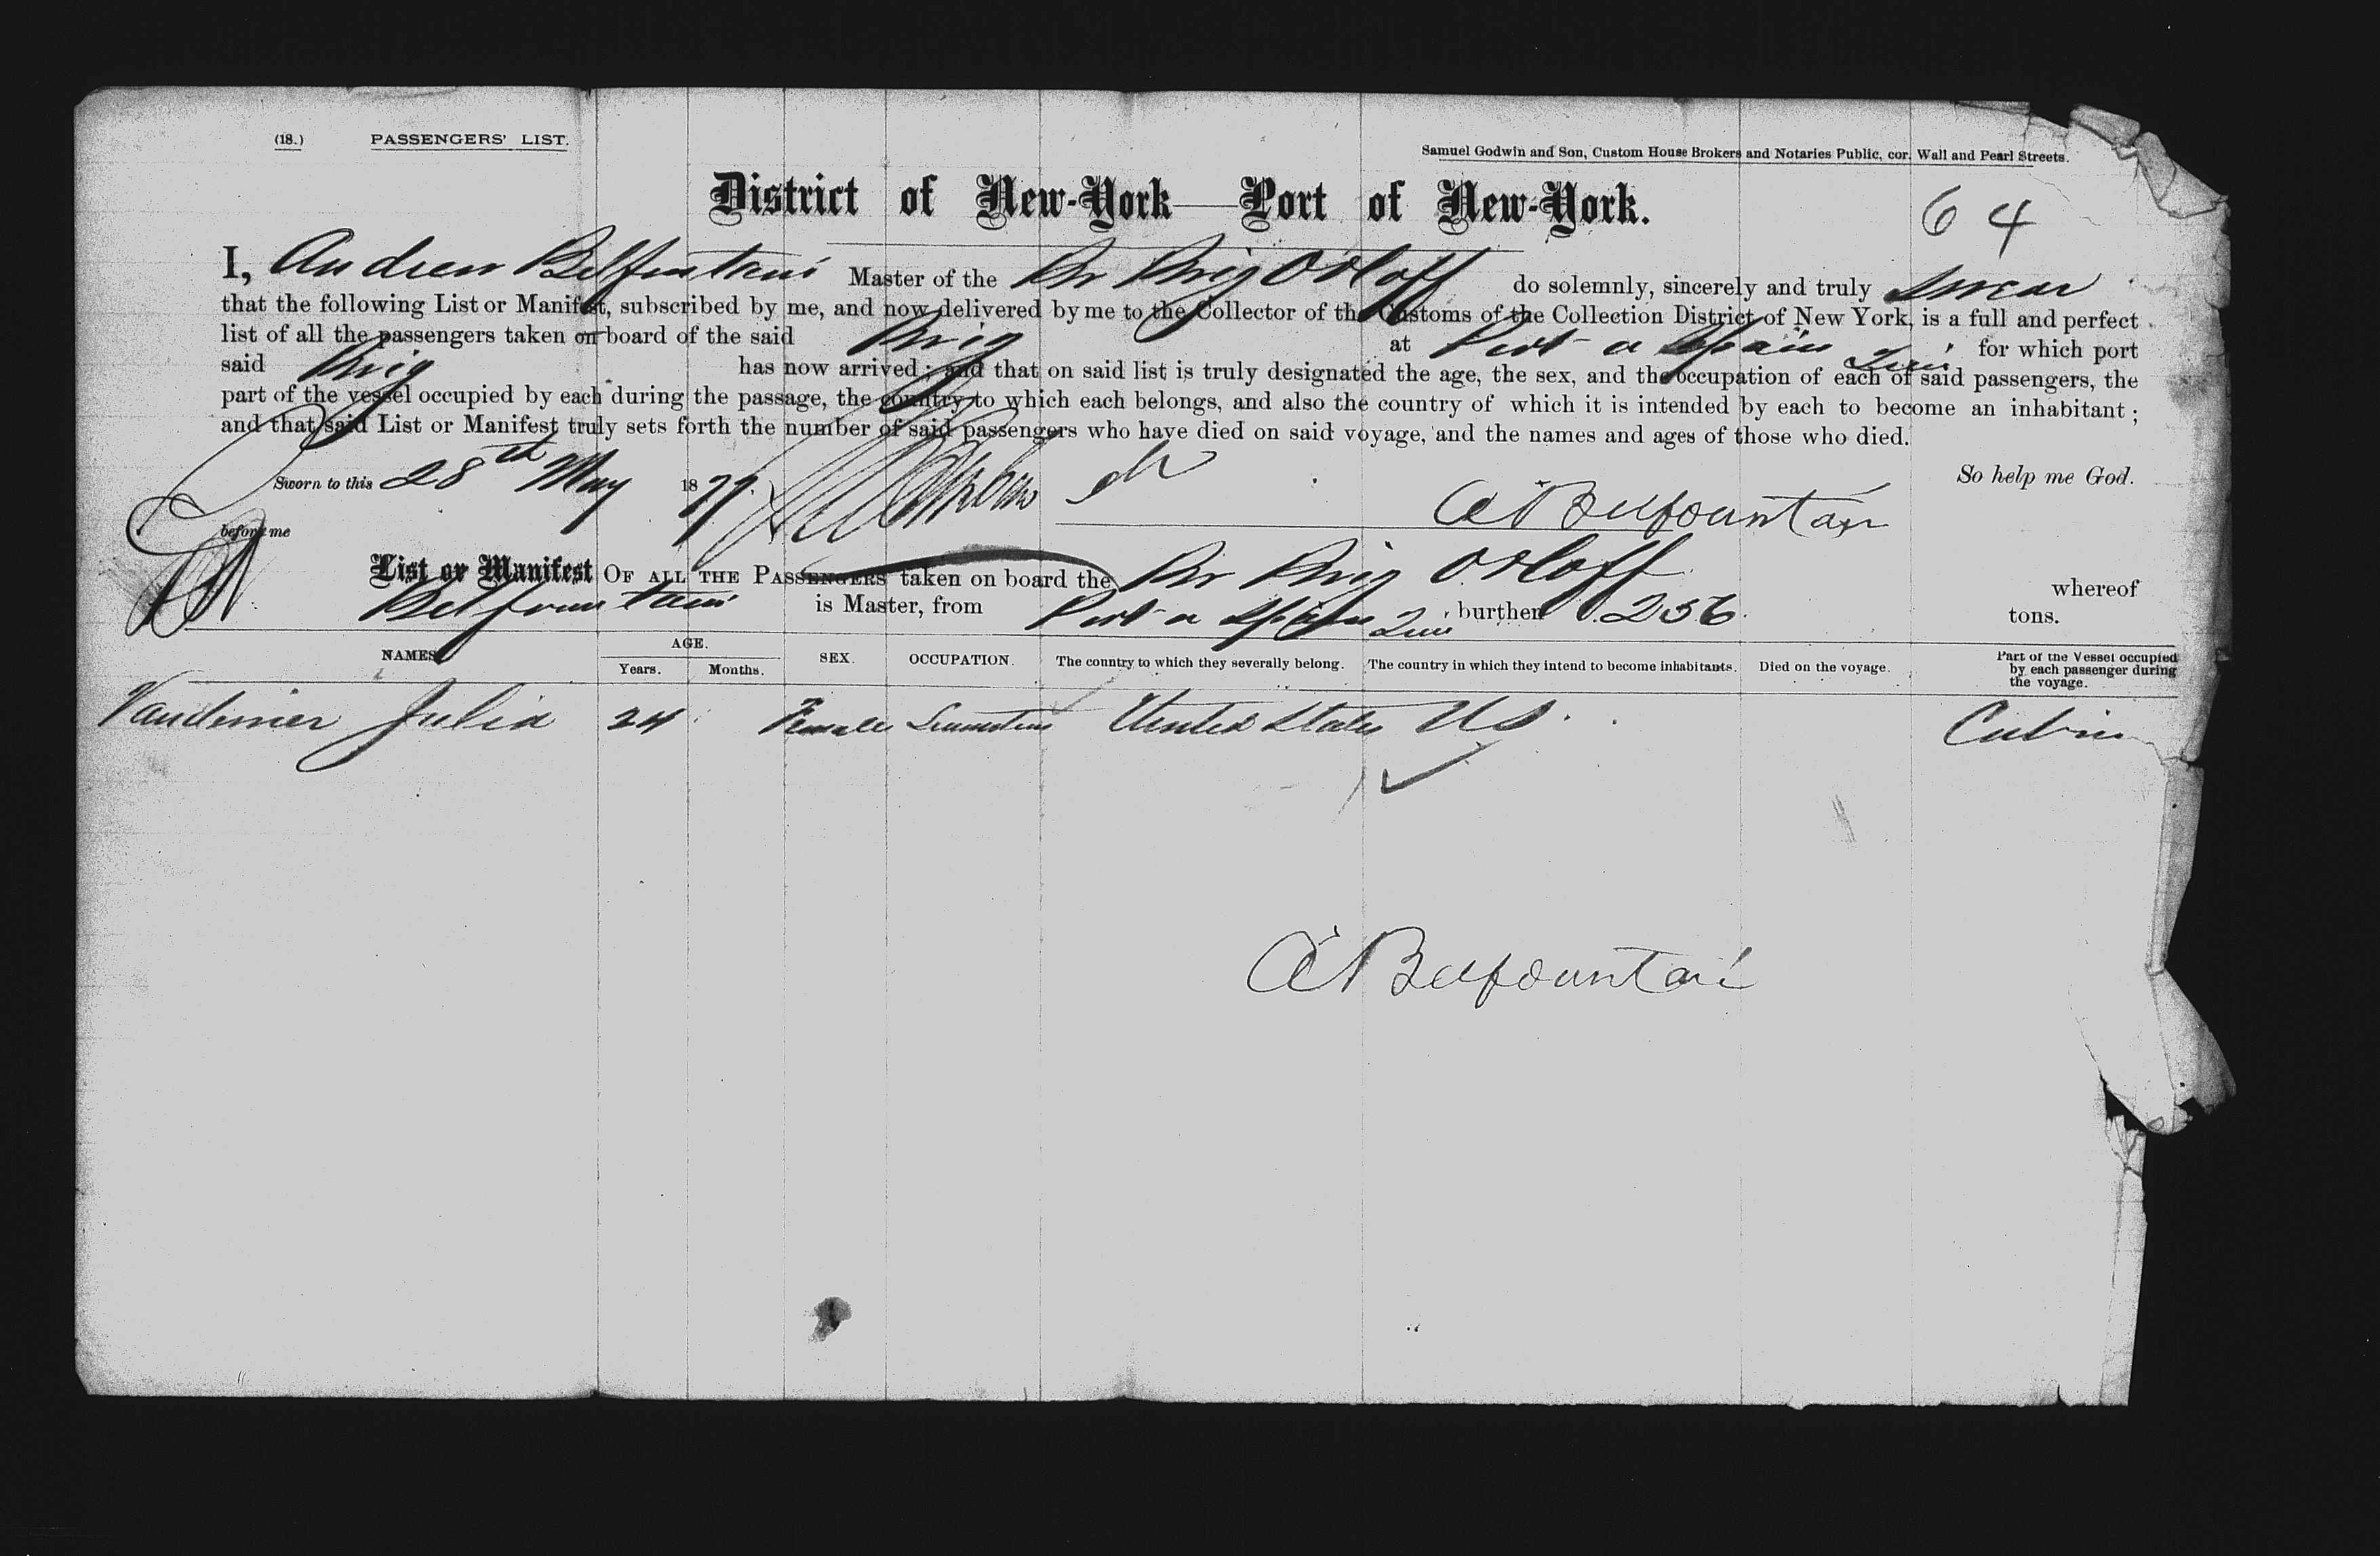 (18.) PASSENGERS' LIST.
Samuel Godwin and Son, Custom House Brokers and Notaries Public, cor. Wall and Pearl Streets.
District of New-York—Port of New-York.
64
I, Andrew Belfountain Master of the Br Brig Orloff do solemnly, sincerely and truly swear
that the following List or Manifest, subscribed by me, and now delivered by me to the Collector of the Customs of the Collection District of New York, is a full and perfect
list of all the passengers taken on board of the said Brig at Port a Spain for which port
said Brig has now arrived; and that on said list is truly designated the age, the sex, and the occupation of each of said passengers, the
part of the vessel occupied by each during the passage, the country to which each belongs, and also the country of which it is intended by each to become an inhabitant;
and that said List or Manifest truly sets forth the number of said passengers who have died on said voyage, and the names and ages of those who died.
So help me God.
Sworn to this 28th May 1879
A Belfountain
before me
List or Manifest OF ALL THE PASSENGERS taken on board the Br Brig Orloff whereof
Belfountain is Master, from Port a Spain burthen 256 tons.
NAMES. AGE. Years. Months. SEX. OCCUPATION. The country to which they severally belong. The country in which they intend to become inhabitants. Died on the voyage. Part of the Vessel occupied by each passenger during the voyage.
Julia 24 Female Seamstress United States US Cabin
A Belfountain